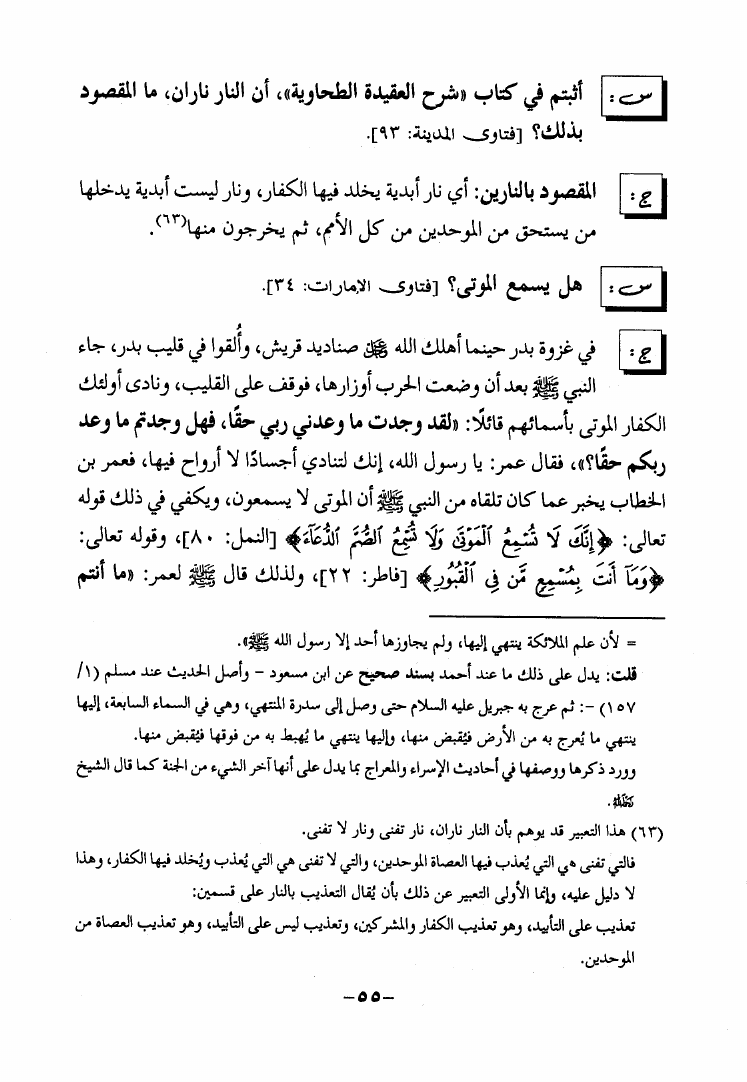 س: أثبتم في كتاب «شرح العقيدة الطحاوية»، أن النار ناران، ما المقصود
بذلك؟ [فتاوى المدينة: ٩٣].
ج: المقصود بالنارين: أي نار أبدية يخلد فيها الكفار، ونار ليست أبدية يدخلها
من يستحق من الموحدين من كل الأمم، ثم يخرجون منها(٦٣).
س: هل يسمع الموتى؟ [فتاوى الإمارات: ٣٤].
ج: في غزوة بدر حينما أهلك الله ﷻ صناديد قريش، وأُلقوا في قليب بدر، جاء
النبي ﷺ بعد أن وضعت الحرب أوزارها، فوقف على القليب، ونادى أولئك
الكفار الموتى بأسمائهم قائلًا: «لقد وجدت ما وعدني ربي حقًا، فهل وجدتم ما وعد
ربكم حقًا؟»، فقال عمر: يا رسول الله، إنك لتنادي أجسادًا لا أرواح فيها، فعمر بن
الخطاب يخبر عما كان تلقاه من النبي ﷺ أن الموتى لا يسمعون، ويكفي في ذلك قوله
تعالى: ﴿إِنَّكَ لَا تُسْمِعُ الْمَوْتَىٰ وَلَا تُسْمِعُ الصُّمَّ الدُّعَاءَ﴾ [النمل: ٨٠]، وقوله تعالى:
﴿وَمَا أَنتَ بِمُسْمِعٍ مَّن فِي الْقُبُورِ﴾ [فاطر: ٢٢]، ولذلك قال ﷺ لعمر: «ما أنتم
= لأن علم الملائكة ينتهي إليها، ولم يجاوزها أحد إلا رسول الله ﷺ».
قلت: يدل على ذلك ما عند أحمد بسند صحيح عن ابن مسعود - وأصل الحديث عند مسلم (١/
١٥٧) -: ثم عرج به جبريل عليه السلام حتى وصل إلى سدرة المنتهي، وهي في السماء السابعة، إليها
ينتهي ما يُعرج به من الأرض فيُقبض منها، وإليها ينتهي ما يُهبط به من فوقها فيُقبض منها.
وورد ذكرها ووصفها في أحاديث الإسراء والمعراج بما يدل على أنها آخر الشيء من الجنة كما قال الشيخ
رحمه الله.
(٦٣) هذا التعبير قد يوهم بأن النار ناران، نار تفنى ونار لا تفنى.
فالتي تفنى هي التي يُعذب فيها العصاة الموحدين، والتي لا تفنى هي التي يُعذب ويُخلد فيها الكفار، وهذا
لا دليل عليه، وإنما الأولى التعبير عن ذلك بأن يُقال التعذيب بالنار على قسمين:
تعذيب على التأبيد، وهو تعذيب الكفار والمشركين، وتعذيب ليس على التأبيد، وهو تعذيب العصاة من
الموحدين.
-٥٥-